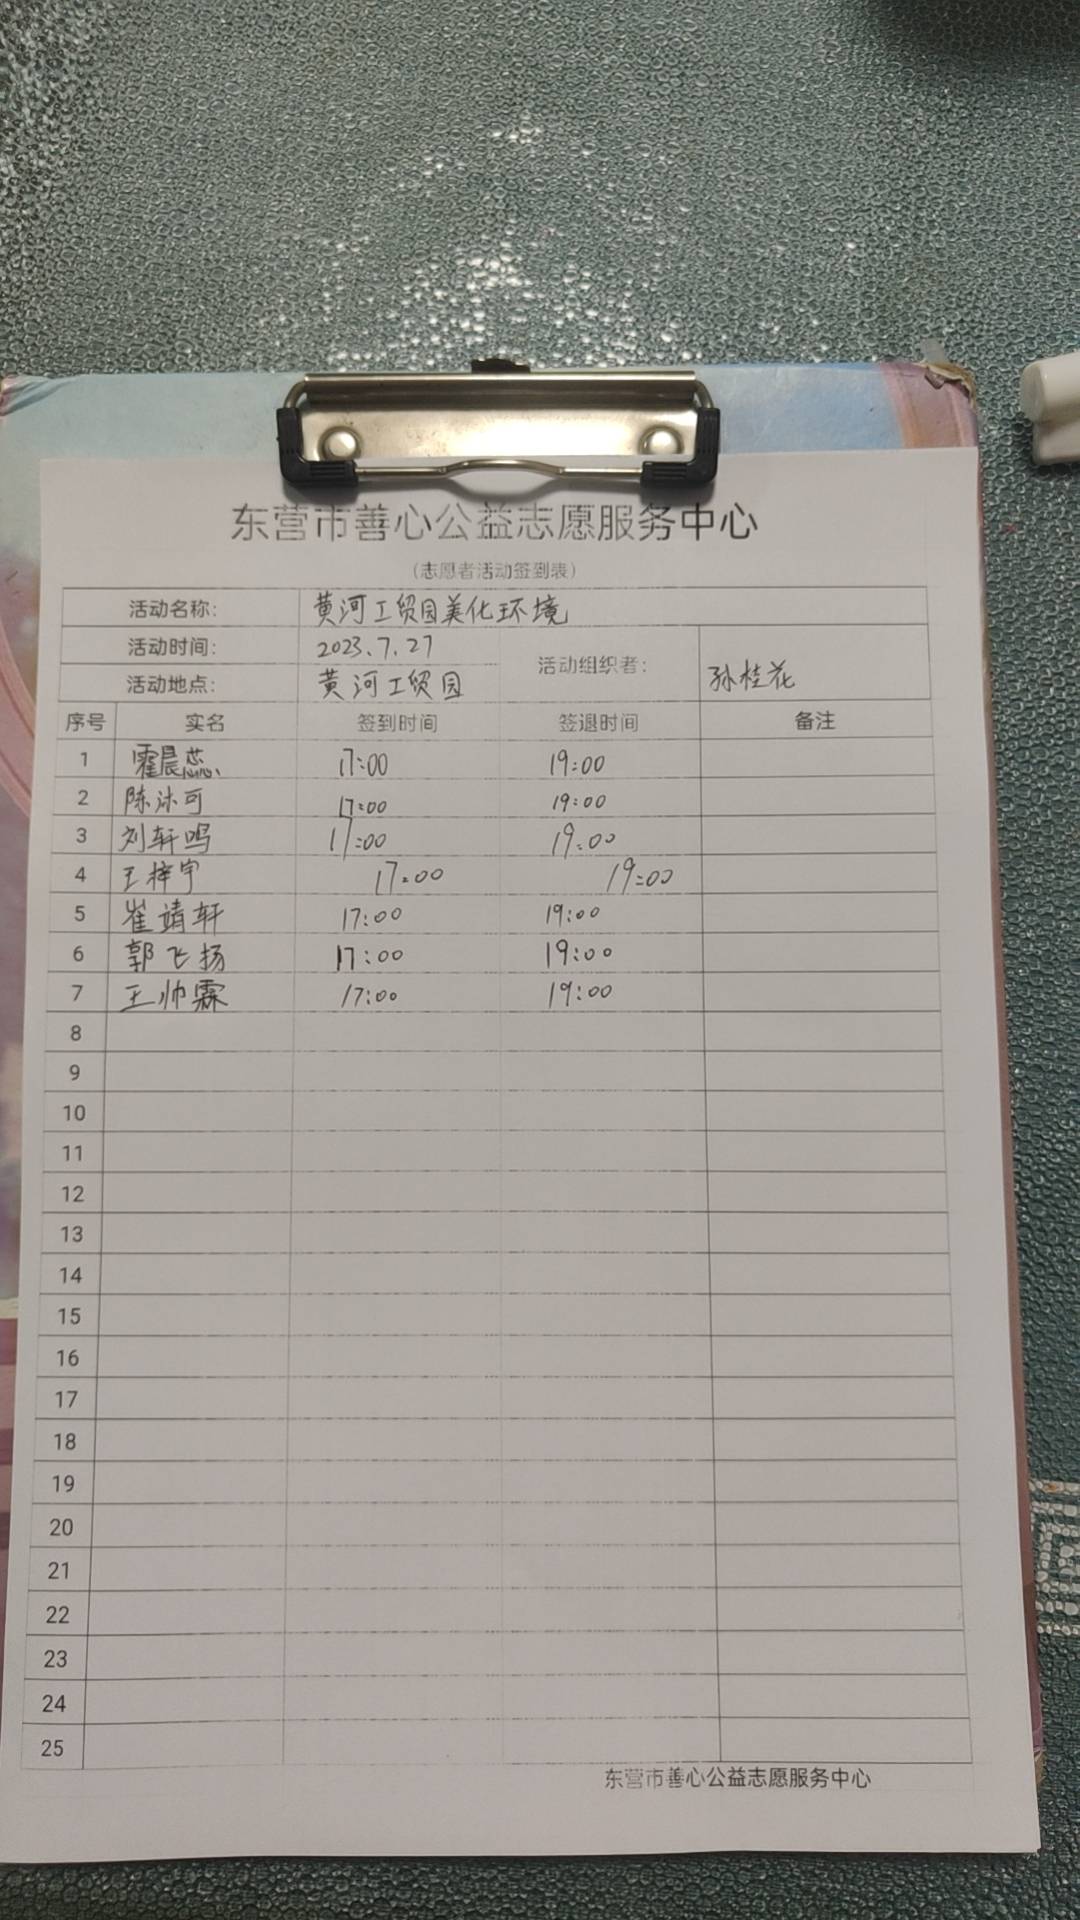 东营市善心公益志愿服务中心
(志愿者活动签到表)
活动名称: 黄河工贸园美化环境
活动时间: 2023.7.27 活动组织者: 孙桂花
活动地点: 黄河工贸园
序号 实名 签到时间 签退时间 备注
1 霍晨蕊 17:00 19:00
2 陈沐可 17:00 19:00
3 刘轩鸣 17:00 19:00
4 王梓宇 17:00 19:00
5 崔靖轩 17:00 19:00
6 郭飞扬 17:00 19:00
7 王帅霖 17:00 19:00
8
9
10
11
12
13
14
15
16
17
18
19
20
21
22
23
24
25
东营市善心公益志愿服务中心